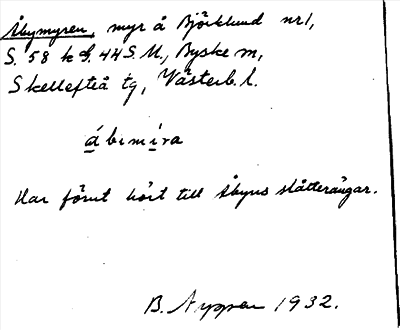 Åbymyren, myr å Björklund nr 1,
S. 58 k S. 44 S. M., Byske sn,
Skellefteå tg, Västerb. l.
ábımíra
Har förut hört till Åbyns slåtterängar.
B. Nyppen 1932.